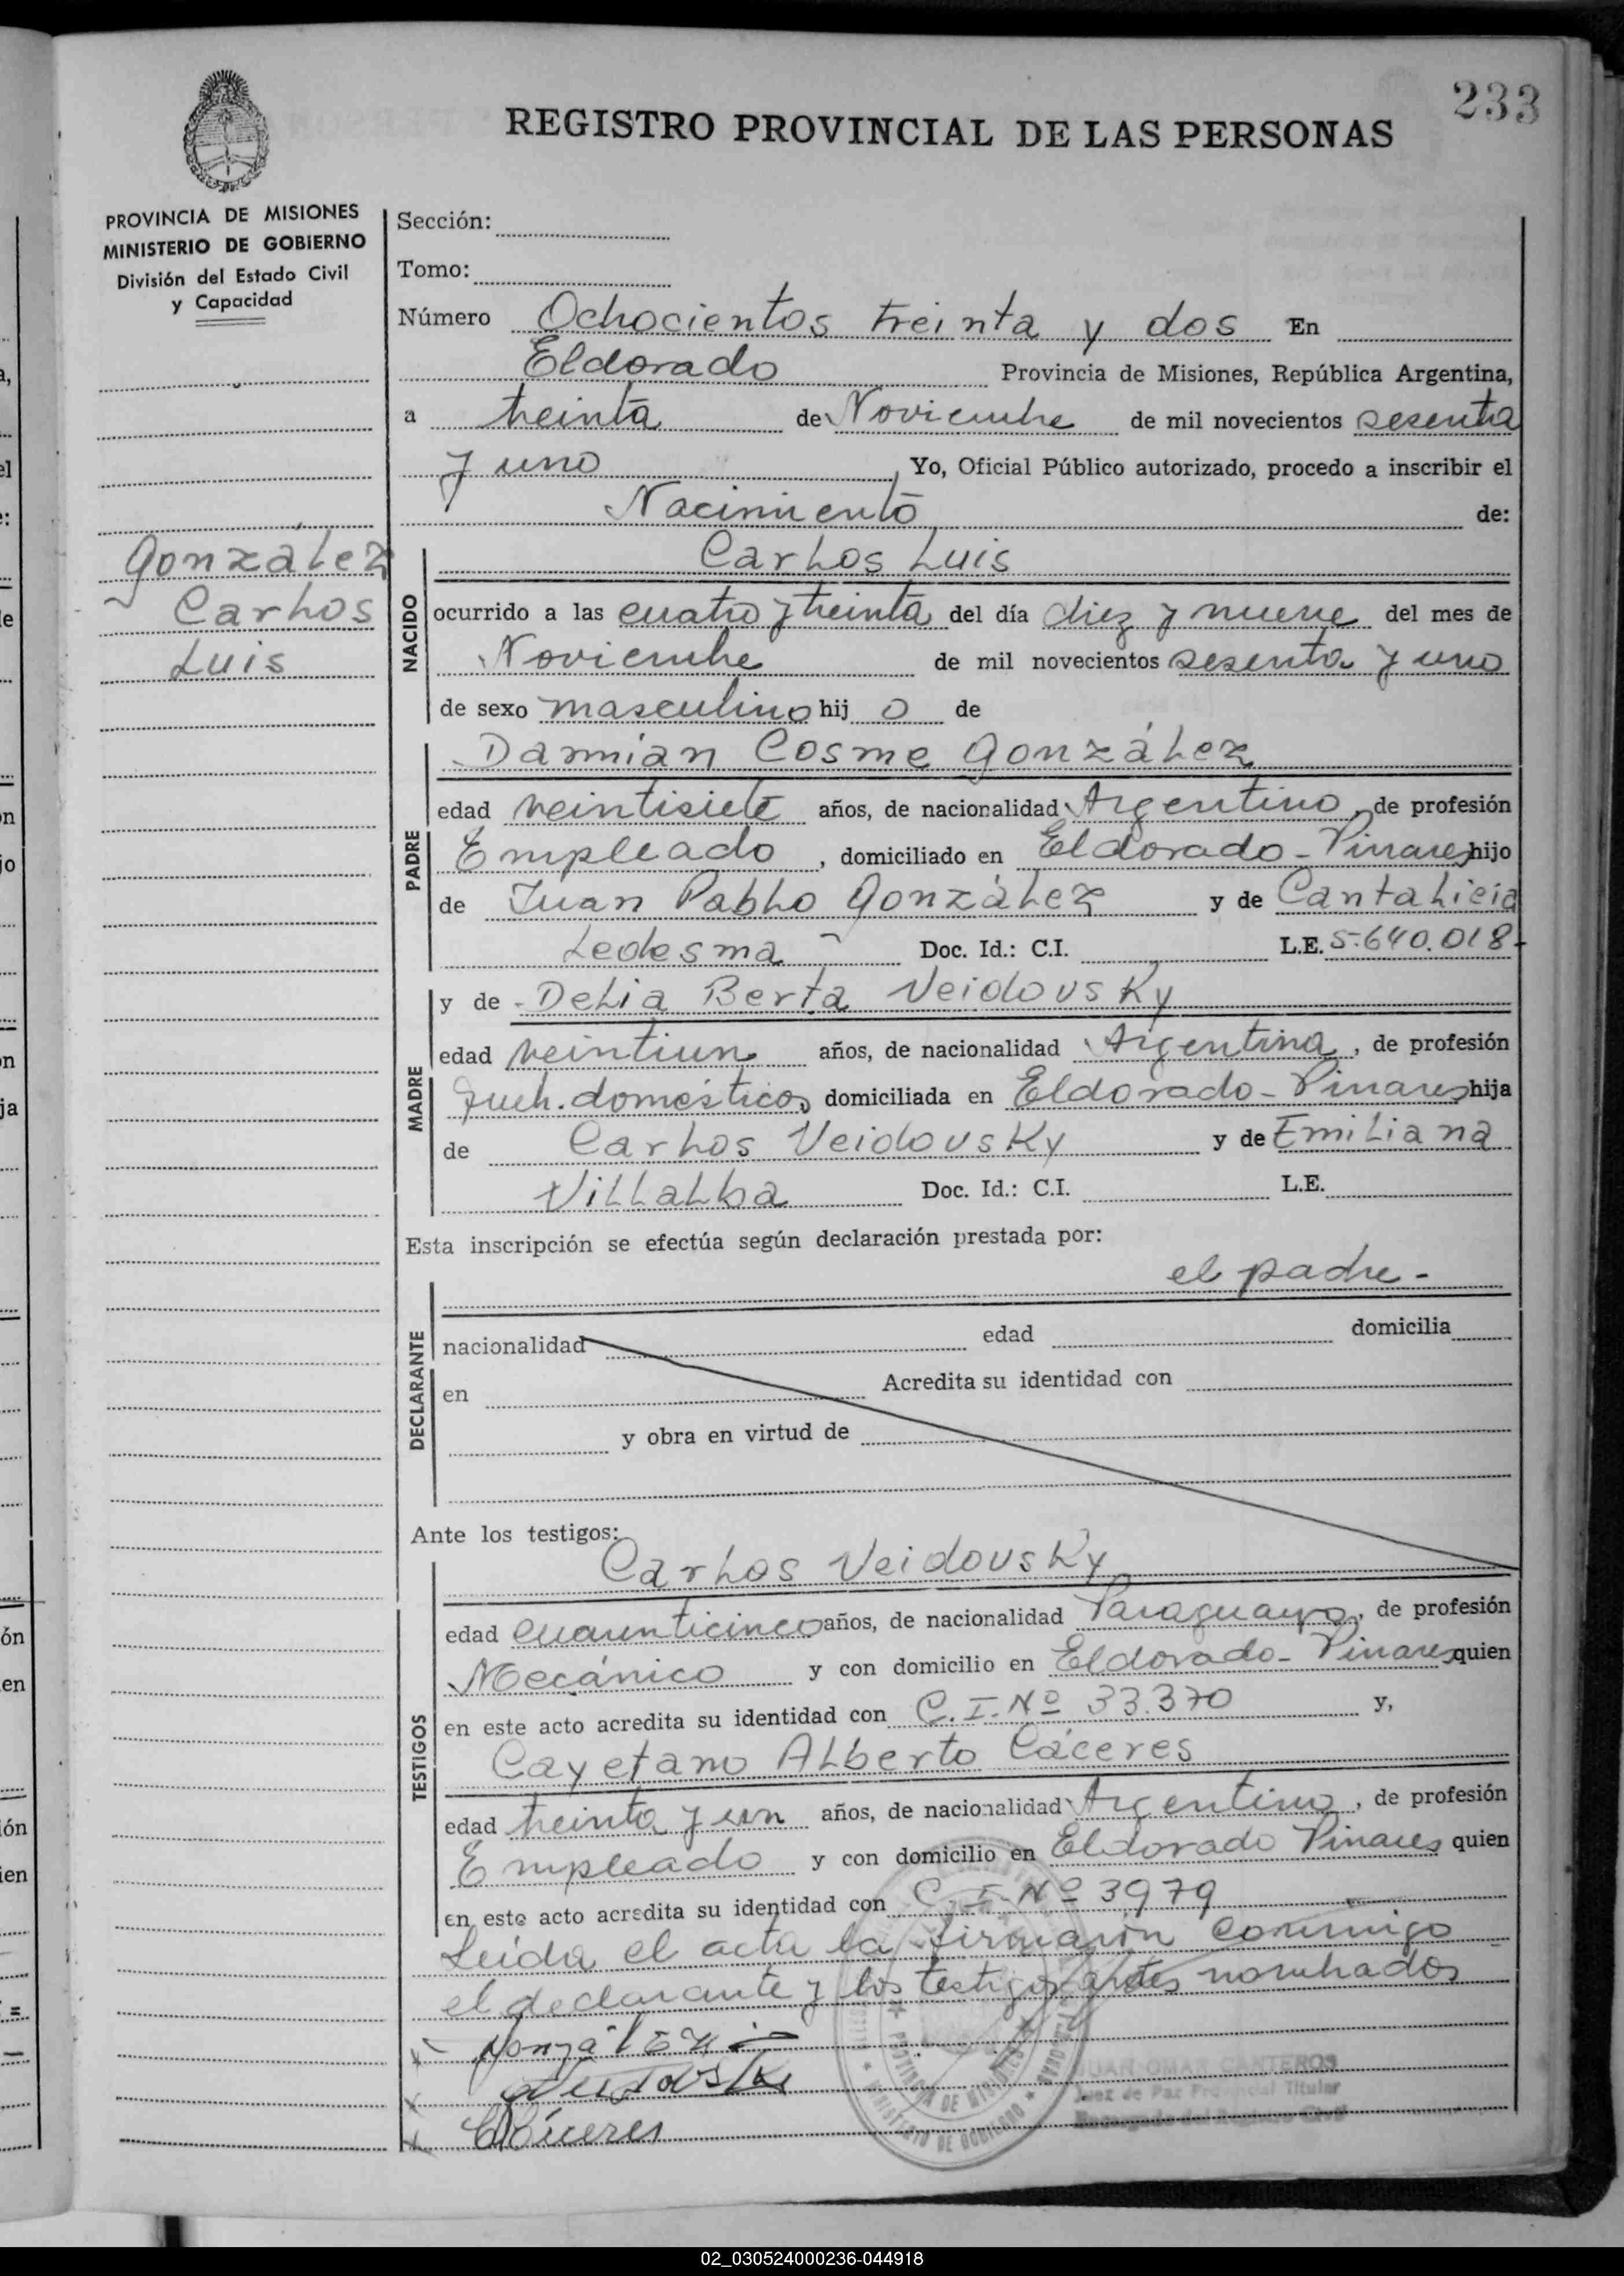 233
REGISTRO PROVINCIAL DE LAS PERSONAS
PROVINCIA DE MISIONES
MINISTERIO DE GOBIERNO
División del Estado Civil
y Capacidad
González
Carlos
Luis
Sección:
Tomo:
Número Ochocientos treinta y dos En
Eldorado Provincia de Misiones, República Argentina,
a treinta de Noviembre de mil novecientos sesenta
y uno, Yo, Oficial Público autorizado, procedo a inscribir el
Nacimiento de:
NACIDO
Carlos Luis
ocurrido a las cuatro y treinta del día diez y nueve del mes de
Noviembre de mil novecientos sesenta y uno
de sexo masculino hij o de
PADRE
Damián Cosme González
edad veintisiete años, de nacionalidad Argentino, de profesión
Empleado, domiciliado en Eldorado - Pinares hijo
de Juan Pablo González y de Cantalicia
Ledesma Doc. Id.: C.I. L.E. 5.640.018-
MADRE
y de Delia Berta Veidovsky
edad veintiun años, de nacionalidad Argentina, de profesión
Queh. domésticos domiciliada en Eldorado - Pinares hija
de Carlos Veidovsky y de Emiliana
Villalba Doc. Id.: C.I. L.E.
Esta inscripción se efectúa según declaración prestada por:
el padre -
DECLARANTE
nacionalidad edad domicilia
en Acredita su identidad con
y obra en virtud de
Ante los testigos:
TESTIGOS
Carlos Veidovsky
edad cuarenticinco años, de nacionalidad Paraguayo, de profesión
Mecánico y con domicilio en Eldorado - Pinares quien
en este acto acredita su identidad con C.I. Nº 33.370 y,
Cayetano Alberto Cáceres
edad treinta y un años, de nacionalidad Argentino, de profesión
Empleado y con domicilio en Eldorado Pinares quien
en este acto acredita su identidad con C.I. Nº 3979
Leída el acta la firmaron conmigo
el declarante y los testigos antes nombrados
González
Cáceres
PROVINCIA DE MISIONES
MINISTERIO DE GOBIERNO
JUAN OMAR CANTEROS
Juez de Paz Provincial Titular
Encargado del Registro Civil
02_030524000236-044918